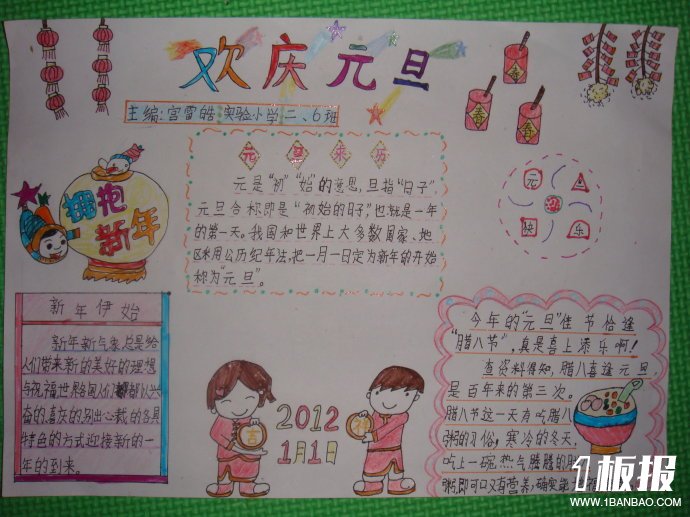 欢庆元旦
主编:宫雷皓 实验小学二、6班
春
春
春
元旦来历
元是“初”“始”的意思,旦指“日子”,
元旦合称即是“初始的日子”,也就是一年
的第一天。我国和世界上大多数国家、地
区采用公历纪年法,把一月一日定为新年的开始
称为“元旦”。
拥抱
新年
元
旦
快
乐
新年伊始
新年新气象总是给
人们带来新的美好的理想
与祝福世界各国人们都以兴
奋的喜庆的别出心裁的各具
特色的方式迎接新的一
年的到来。
吉
祥
2012
1月1日
今年的“元旦”佳节恰逢
“腊八节”,真是喜上添乐啊!
查资料得知,腊八喜逢元旦,
是百年来的第三次。
腊八节这一天有吃腊八
粥的习俗,寒冷的冬天,
吃上一碗热气腾腾的
粥,即可口又有营养,确实能
1板报
WWW.1BANBAO.COM